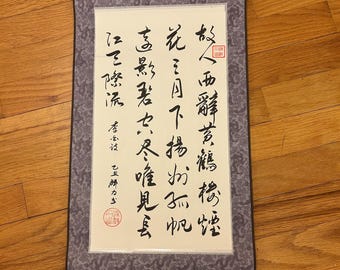 故人西辭黄鶴樓煙
花三月下揚州孤帆
遠影碧空尽唯見長
江天際流
李白诗
乙丑